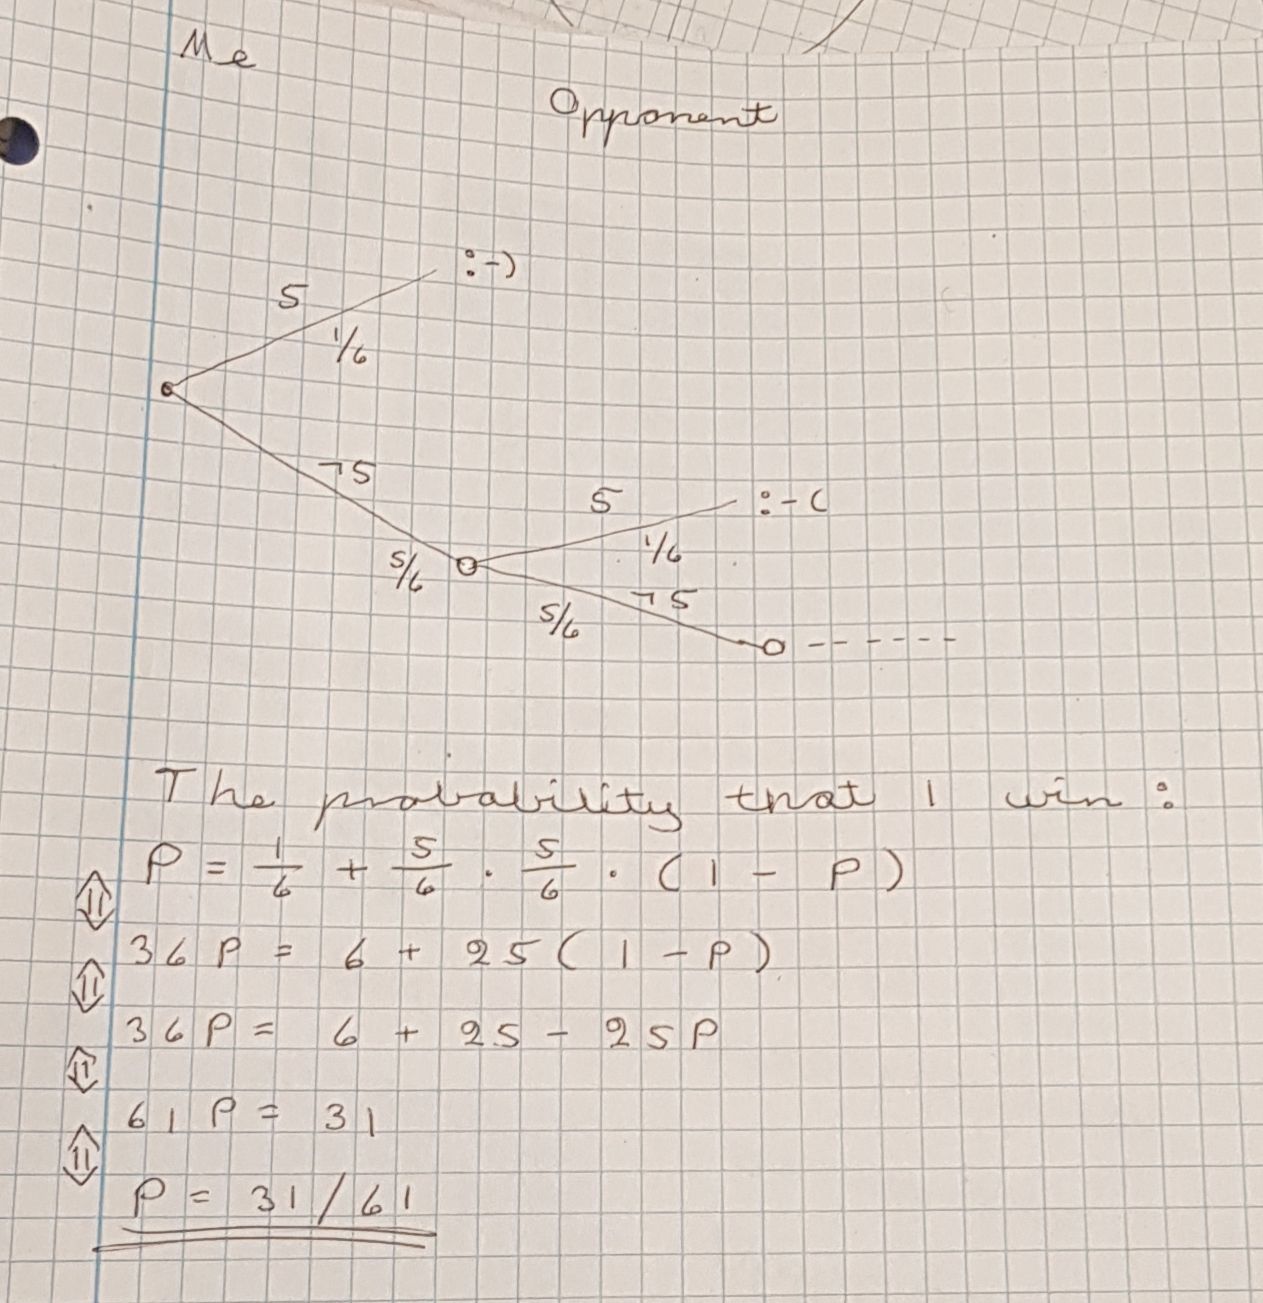 Me
Opponent
5 :-)
1/6
¬5
5 :-(
5/6 1/6
5/6 ¬5
The probability that I win:
P = 1/6 + 5/6 · 5/6 · (1 - P)
⇕ 36P = 6 + 25(1 - P)
⇕ 36P = 6 + 25 - 25P
⇕ 61P = 31
⇕ P = 31/61